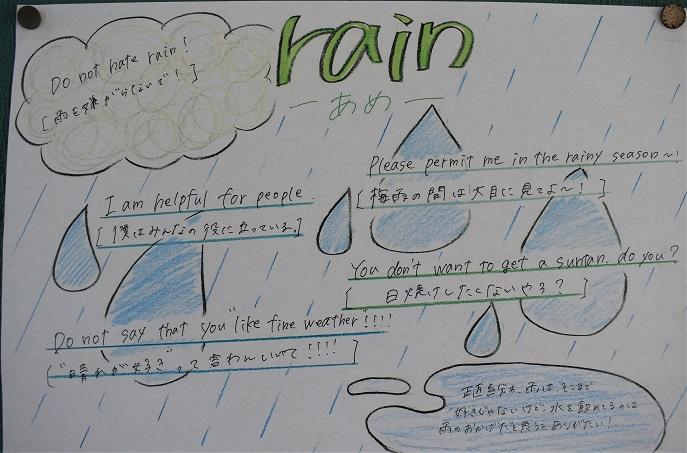 rain
ーあめー
Do not hate rain!
[雨を嫌がらないで!]
Please permit me in the rainy season~!
[梅雨の間は大目に見てよ~!]
I am helpful for people.
[僕はみんなの役に立っている。]
You don't want to get a suntan. do you?
[日焼けしたくないやろ?]
Do not say that you "like fine weather"!!!!
["晴れが好き"って言わんといて!!!!]
正直自分も、雨は、そこまで
好きじゃないけど、水を飲めてるのは
雨のおかげだと思うとありがたい!